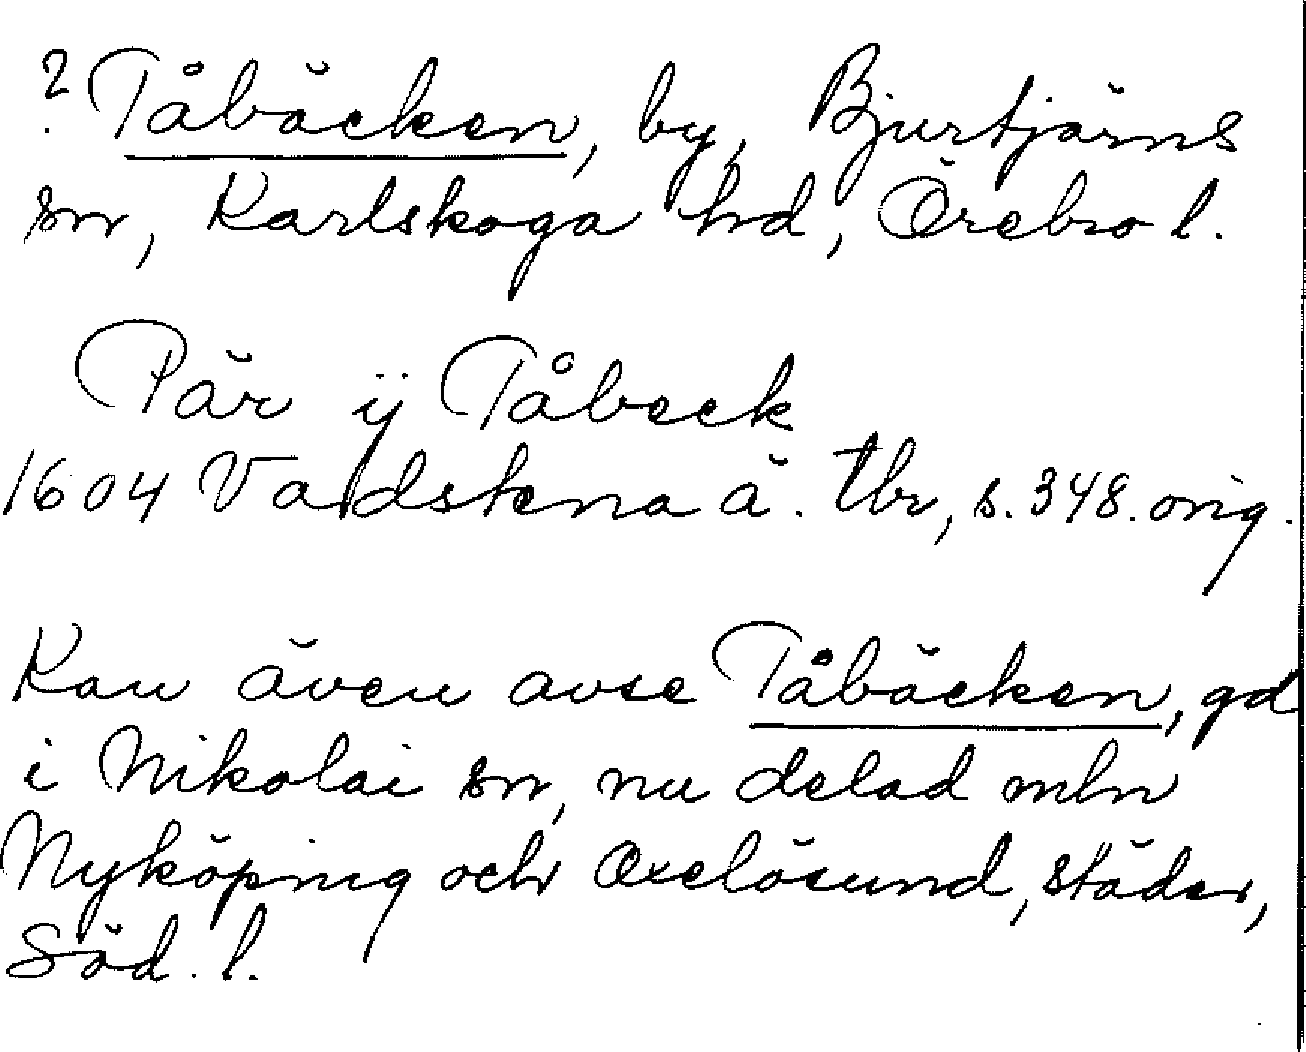 ? Tåbäcken, by, Bjurtjärns
sn, Karlskoga hd, Örebro l.
Pär ij Tåbeck
1604 Vadstena ä. tbr, s. 348. orig.
Kan även avse Tåbäcken, gd
i Nikolai sn, nu delad mln
Nyköping och Oxelösund, städer,
Söd. l.